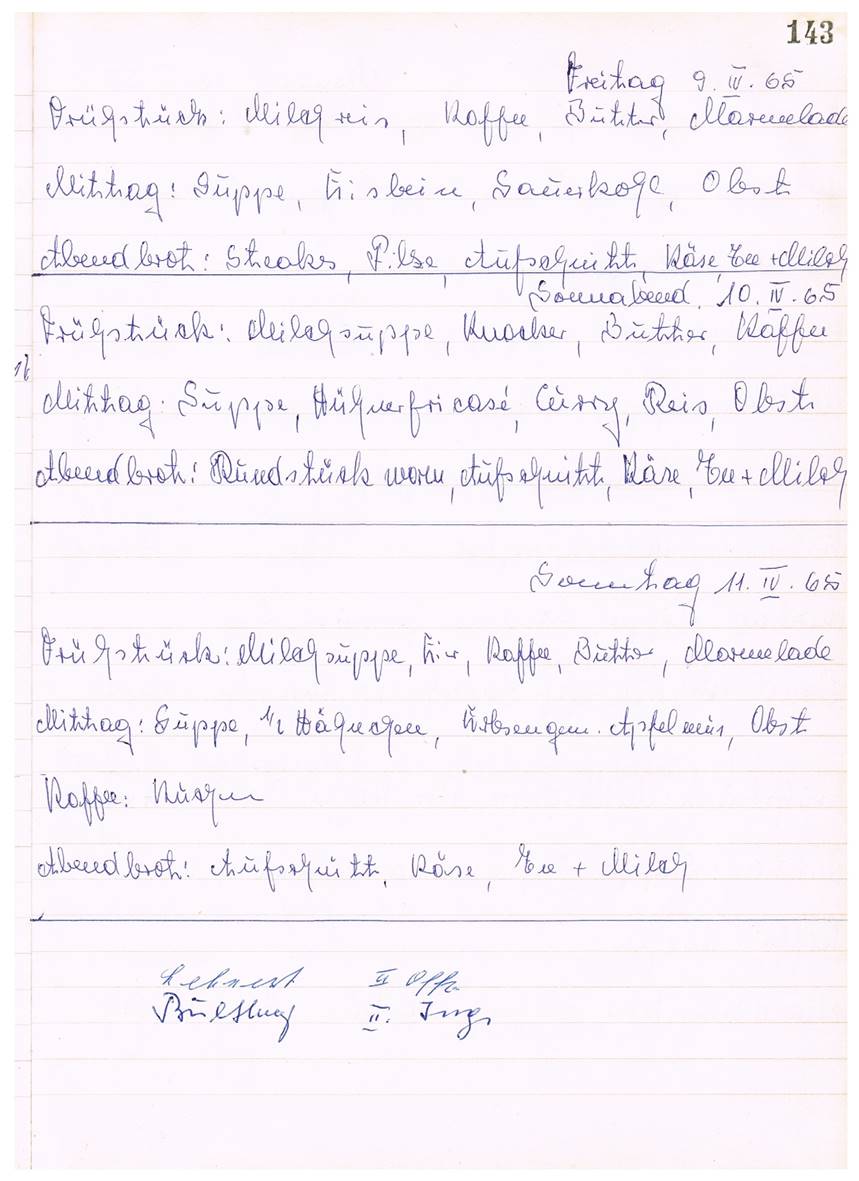 143
Freitag 9. IV. 65
Frühstück: Milchreis, Kaffee, Butter, Marmelade
Mittag: Suppe, Eisbein, Sauerkohl, Obst
Abendbrot: Steaks, Pilze, Aufschnitt, Käse, Tee + Milch
Sonnabend, 10. IV. 65
Frühstück: Milchsuppe, Knacker, Butter, Kaffee
Mittag: Suppe, Hühnerfricasé, Curry, Reis, Obst
Abendbrot: Rundstück warm, Aufschnitt, Käse, Tee + Milch
Sonntag 11. IV. 65
Frühstück: Milchsuppe, Eier, Kaffee, Butter, Marmelade
Mittag: Suppe, 1/2 Hähnchen, Erbsengem. Apfelmus, Obst
Kaffee: Kuchen
Abendbrot: Aufschnitt, Käse, Tee + Milch
Lehnert II Offz
II. Ing.